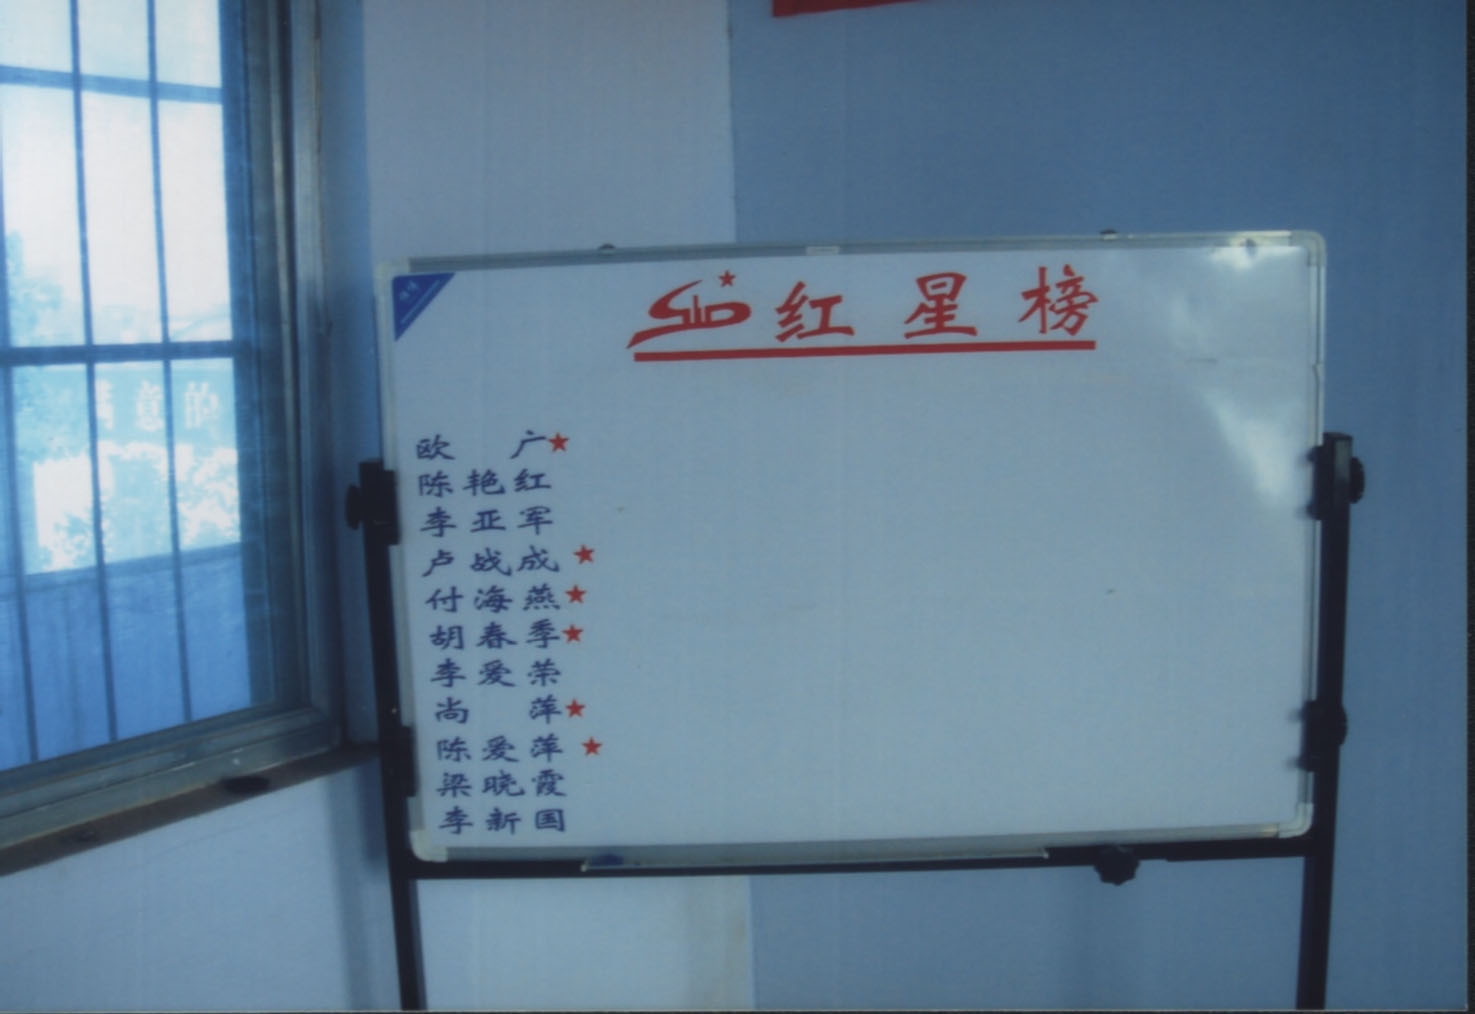 红星榜
满意的
欧 广★
陈艳红
李亚军
卢战成★
付海燕★
胡春季★
李爱荣
尚 萍★
陈爱萍★
梁晓霞
李新国